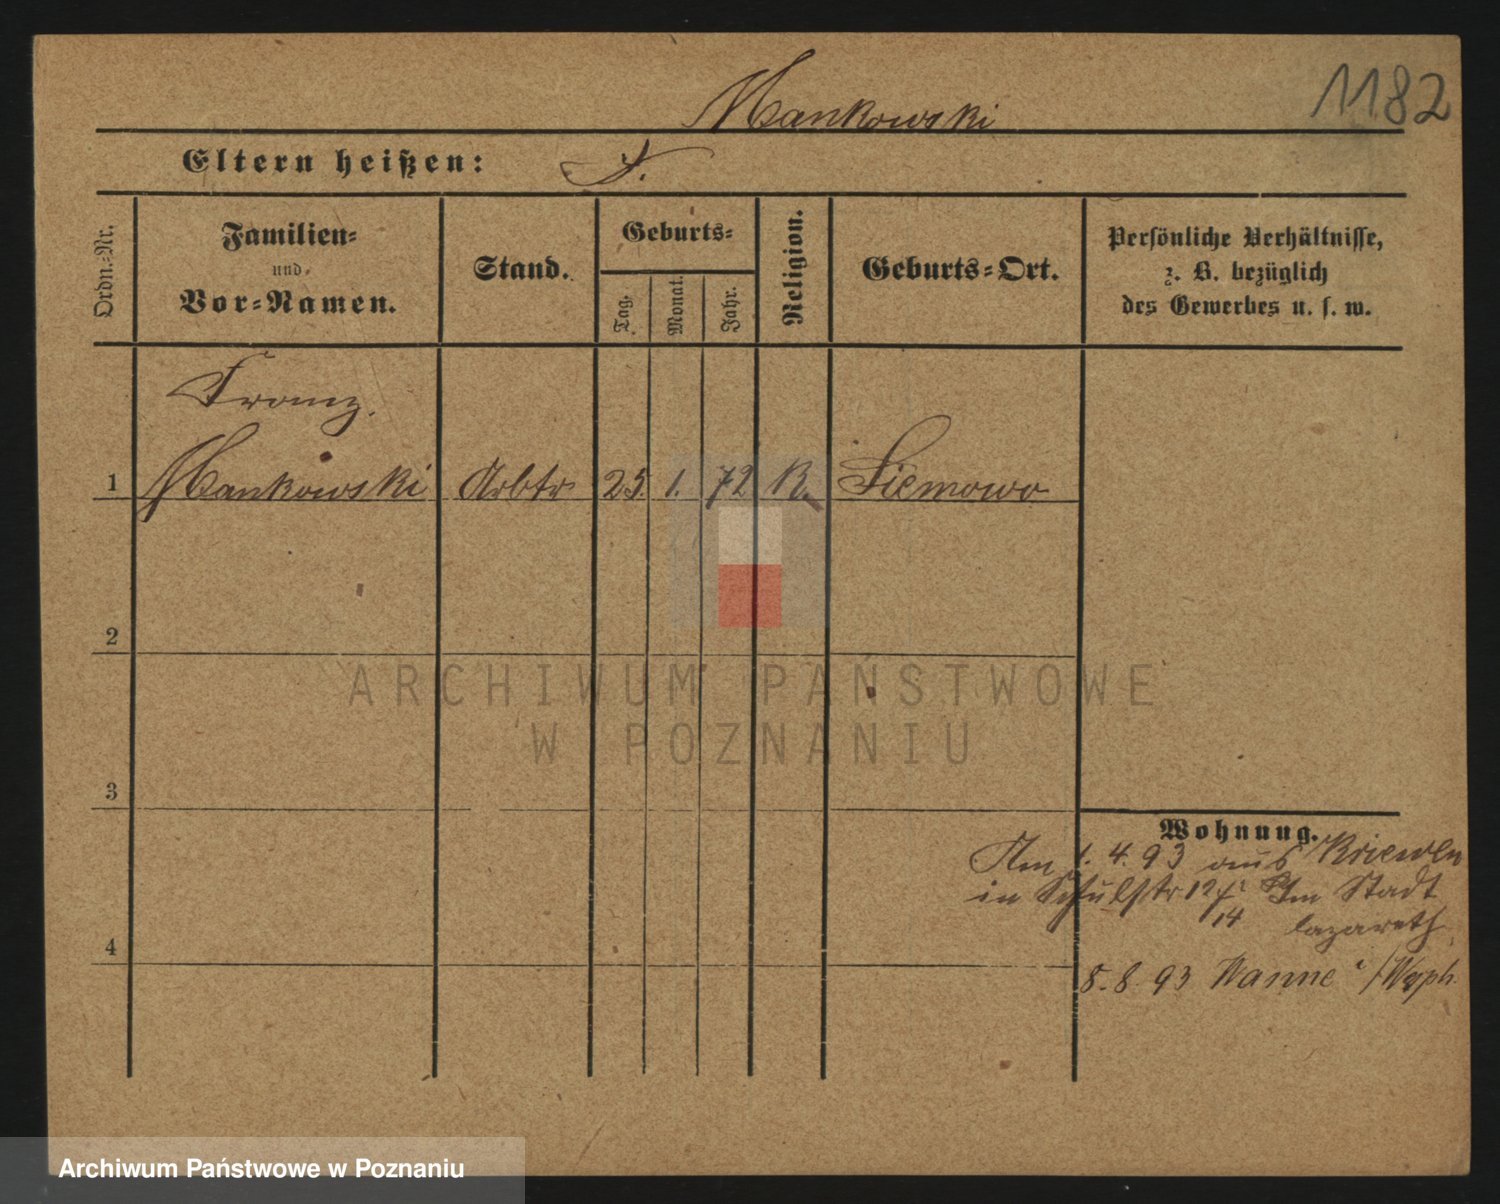 Mankowski
1182
Eltern heißen: F.
Ordn.-Nr.
Familien-
und
Vor-Namen.
Stand.
Geburts-
Tag.
Monat.
Jahr.
Religion.
Geburts-Ort.
Persönliche Verhältnisse,
z. B. bezüglich
des Gewerbes u. s. w.
Franz.
1 Mankowski Arbtr 25. 1. 72 K. Siemowo
2
ARCHIWUM PAŃSTWOWE
W POZNANIU
3
Wohnung.
Am 1. 4. 93 aus Kriewen
in Schulstr 12 Im Stadt
14 lazareth
4
8. 8. 93 Wanne i/Wstph.
Archiwum Państwowe w Poznaniu